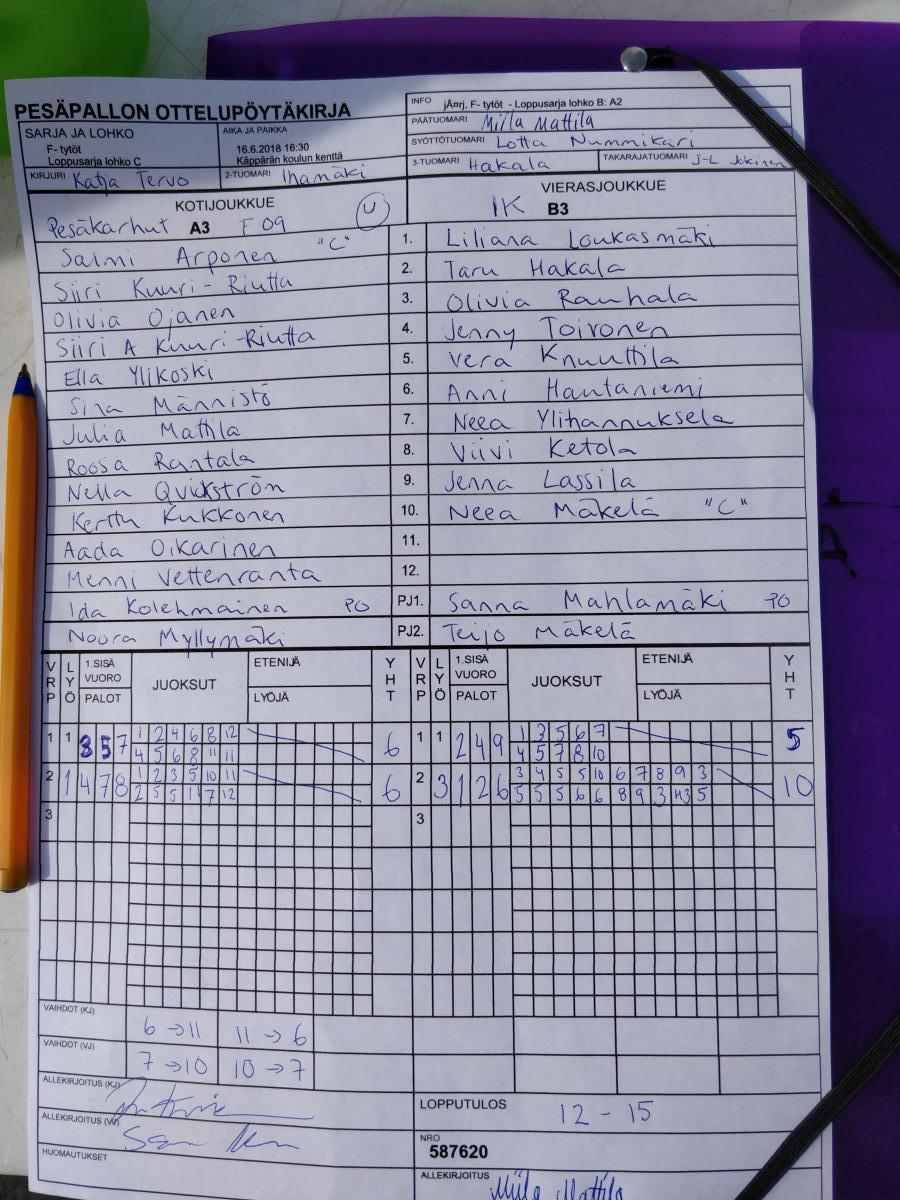 PESÄPALLON OTTELUPÖYTÄKIRJA
SARJA JA LOHKO
F- tytöt
Loppusarja lohko C
AIKA JA PAIKKA
16.6.2018 16:30
Käppärän koulun kenttä
KIRJURI Katja Tervo
2-TUOMARI Ihamäki
INFO jÄ¤rj. F- tytöt - Loppusarja lohko B: A2
PÄÄTUOMARI Miila Mattila
SYÖTTÖTUOMARI Lotta Nummikari
3-TUOMARI Hakala
TAKARAJATUOMARI J-L Jokinen
KOTIJOUKKUE
Pesäkarhut A3 F09 U
VIERASJOUKKUE
IK B3
Saimi Arponen "C" 1. Liliana Loukasmäki
Siiri Kuuri-Riutta 2. Taru Hakala
Olivia Ojanen 3. Olivia Rauhala
Siiri A Kuuri-Riutta 4. Jenny Toivonen
Ella Ylikoski 5. Vera Knuuttila
Sina Männistö 6. Anni Hautaniemi
Julia Mattila 7. Neea Ylihannuksela
Roosa Rantala 8. Viivi Ketola
Nella Quickström 9. Jenna Lassila
Kerttu Kukkonen 10. Neea Mäkelä "C"
Aada Oikarinen 11.
Menni Vettenranta 12.
Ida Kolehmainen PO PJ1. Sanna Mahlamäki PO
Noora Myllymäki PJ2. Teijo Mäkelä
VRP LYÖ 1.SISÄ VUORO PALOT JUOKSUT ETENIJÄ LYÖJÄ YHT VRP LYÖ 1.SISÄ VUORO PALOT JUOKSUT ETENIJÄ LYÖJÄ YHT
1 1 8 5 7 1 2 4 6 8 12 6 1 1 2 4 9 1 3 5 6 7 5
4 5 6 8 11 11 4 5 7 8 10
2 1 4 7 8 1 2 3 5 10 11 6 2 3 1 2 6 3 4 5 5 10 6 7 8 9 3 10
2 5 5 1 7 12 5 5 5 6 6 8 9 3 5
3 3
VAIHDOT (KJ) 6 →11 11 → 6
VAIHDOT (VJ) 7 →10 10 → 7
ALLEKIRJOITUS (KJ)
ALLEKIRJOITUS (VJ)
HUOMAUTUKSET
LOPPUTULOS 12 - 15
NRO
587620
ALLEKIRJOITUS Miila Mattila